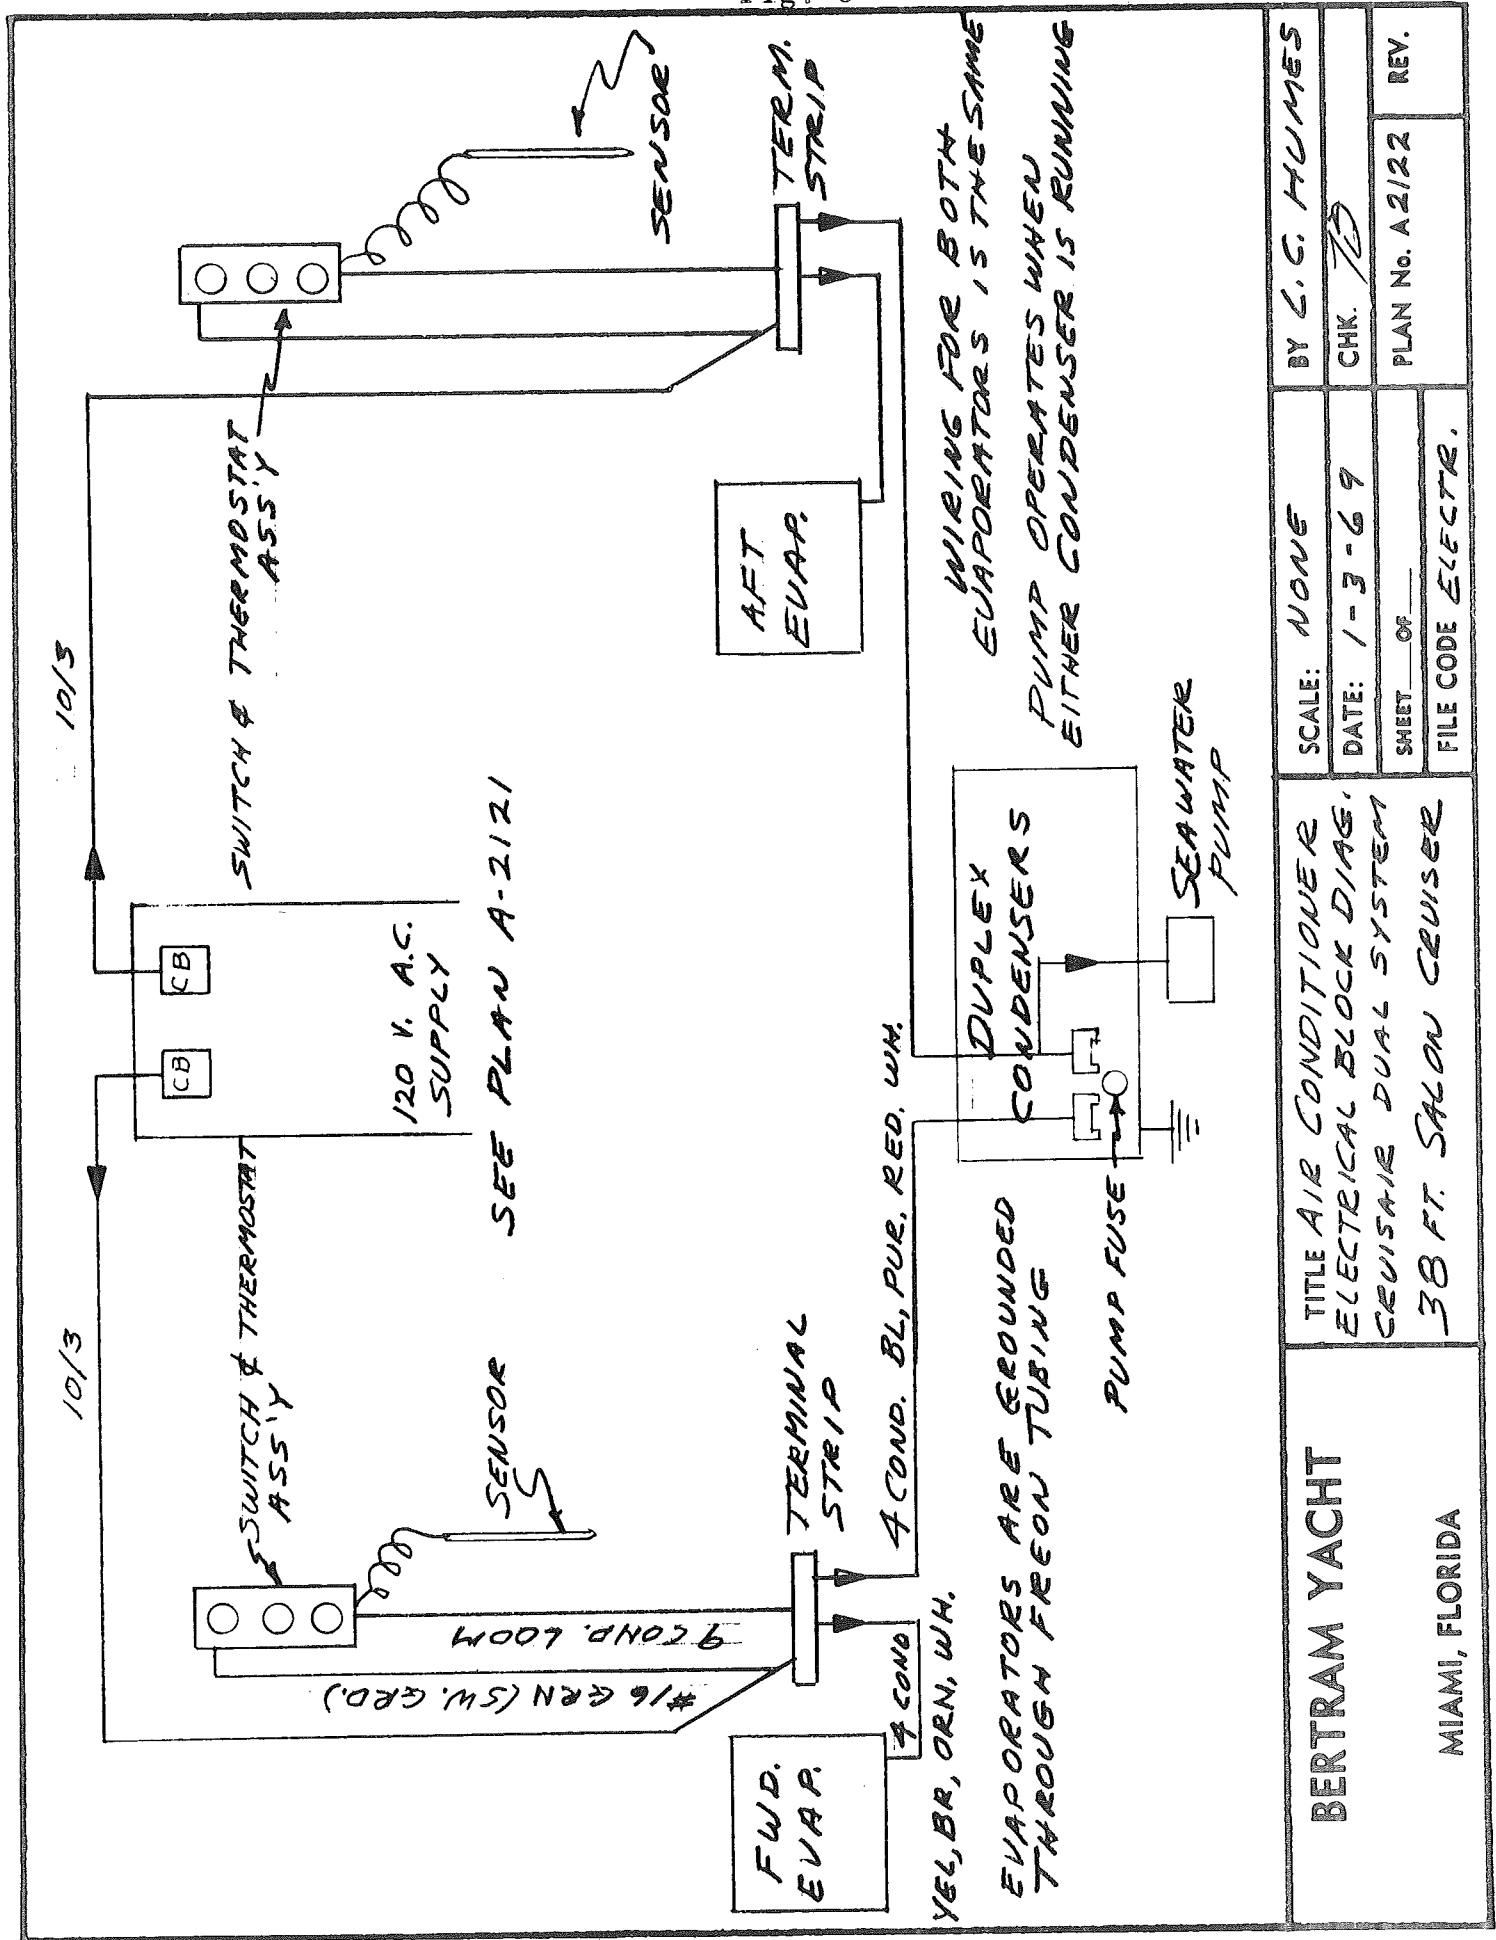 10/3
10/3
SWITCH & THERMOSTAT
ASS'Y
SENSOR
#16 GRN (SW. GRD.)
9 COND. LOOM
CB
CB
120 V. A.C.
SUPPLY
SEE PLAN A-2121
SWITCH & THERMOSTAT
ASS'Y
SENSOR
FWD.
EVAP.
4 COND
TERMINAL
STRIP
AFT
EVAP.
TERM.
STRIP
YEL, BR, ORN, WH.
4 COND. BL, PUR, RED, WH.
EVAPORATORS ARE GROUNDED
THROUGH FREON TUBING
PUMP FUSE
DUPLEX
CONDENSERS
SEAWATER
PUMP
WIRING FOR BOTH
EVAPORATORS IS THE SAME
PUMP OPERATES WHEN
EITHER CONDENSER IS RUNNING
BERTRAM YACHT
MIAMI, FLORIDA
TITLE AIR CONDITIONER
ELECTRICAL BLOCK DIAG.
CRUISAIR DUAL SYSTEM
38 FT. SALON CRUISER
SCALE: NONE
DATE: 1-3-69
SHEET OF
FILE CODE ELECTR.
BY C. C. HUMES
CHK.
PLAN No. A2122
REV.